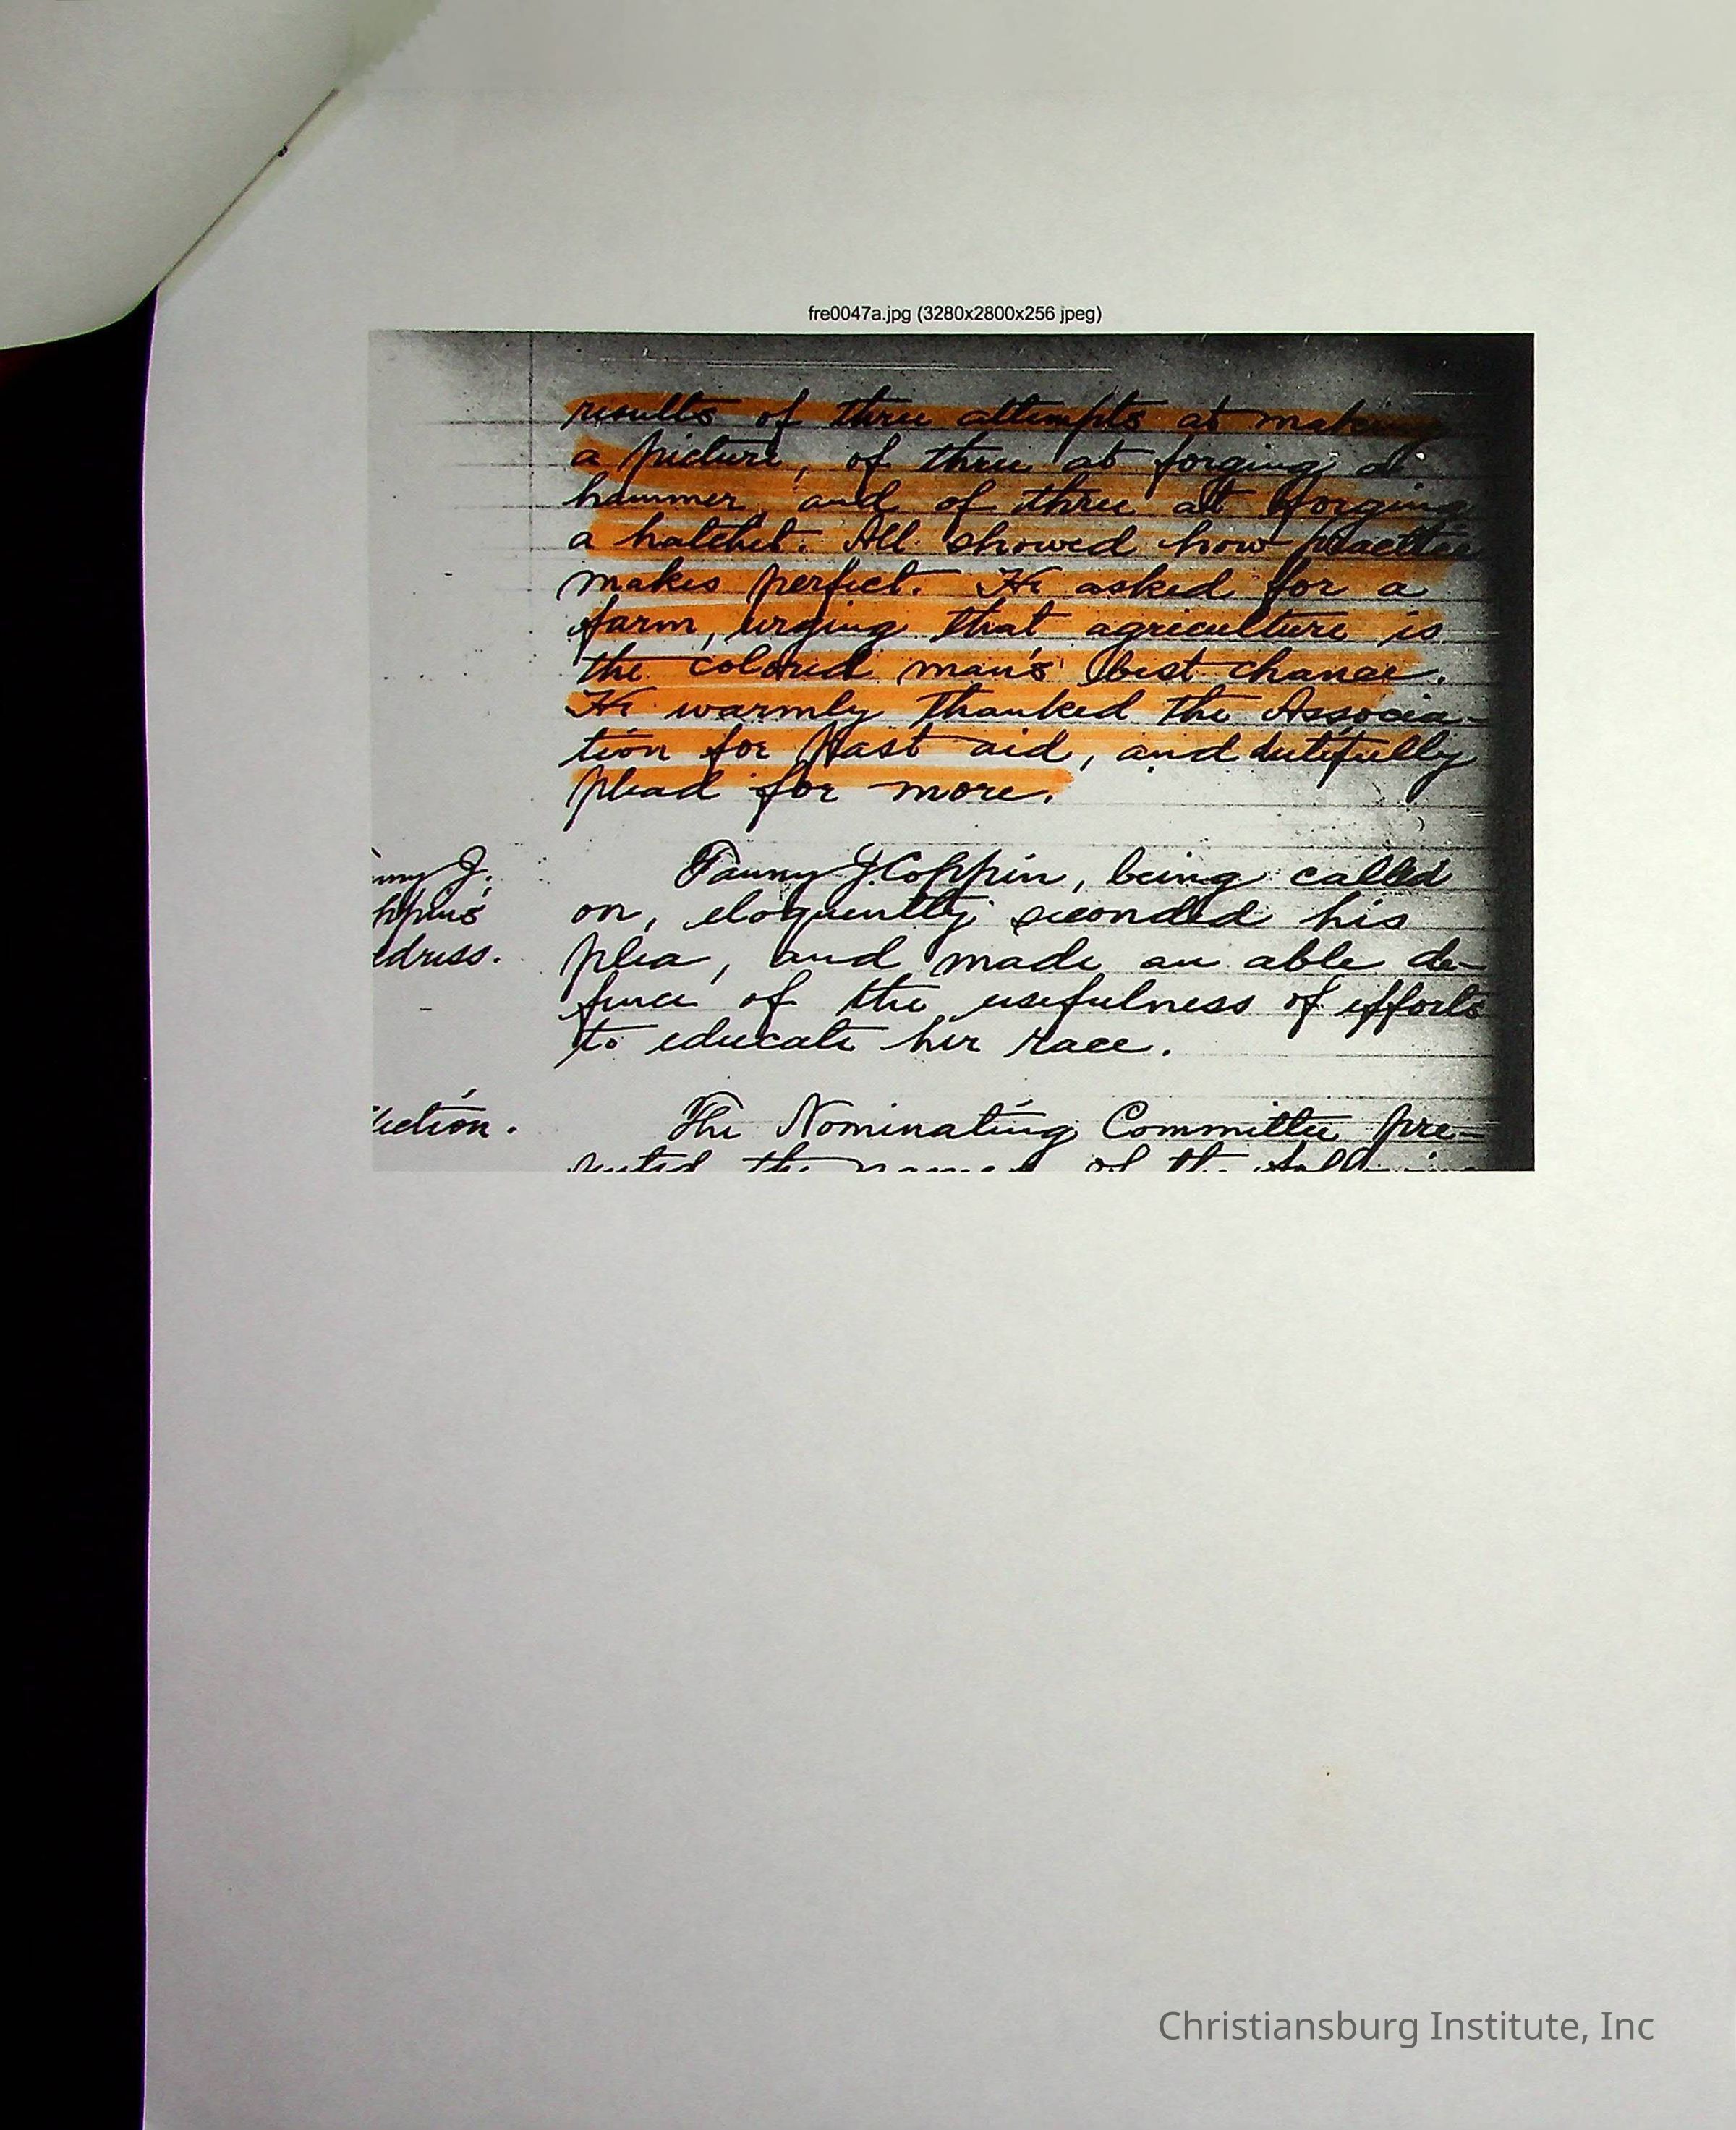 fre0047a.jpg (3280x2800x256 jpeg)
results of three attempts at making
a picture, of three at forging a
hammer, and of three at forging
a hatchet. All showed how practice
makes perfect. He asked for a
farm, urging that agriculture is
the colored man's best chance.
He warmly thanked the Associa-
tion for past aid, and dutifully
plead for more.
nny J.
ppin's
ddress.
Fanny J. Coppin, being called
on, eloquently seconded his
plea, and made an able de-
fence of the usefulness of efforts
to educate her race.
lection.
The Nominating Committee pre-
sented the names of the following
Christiansburg Institute, Inc